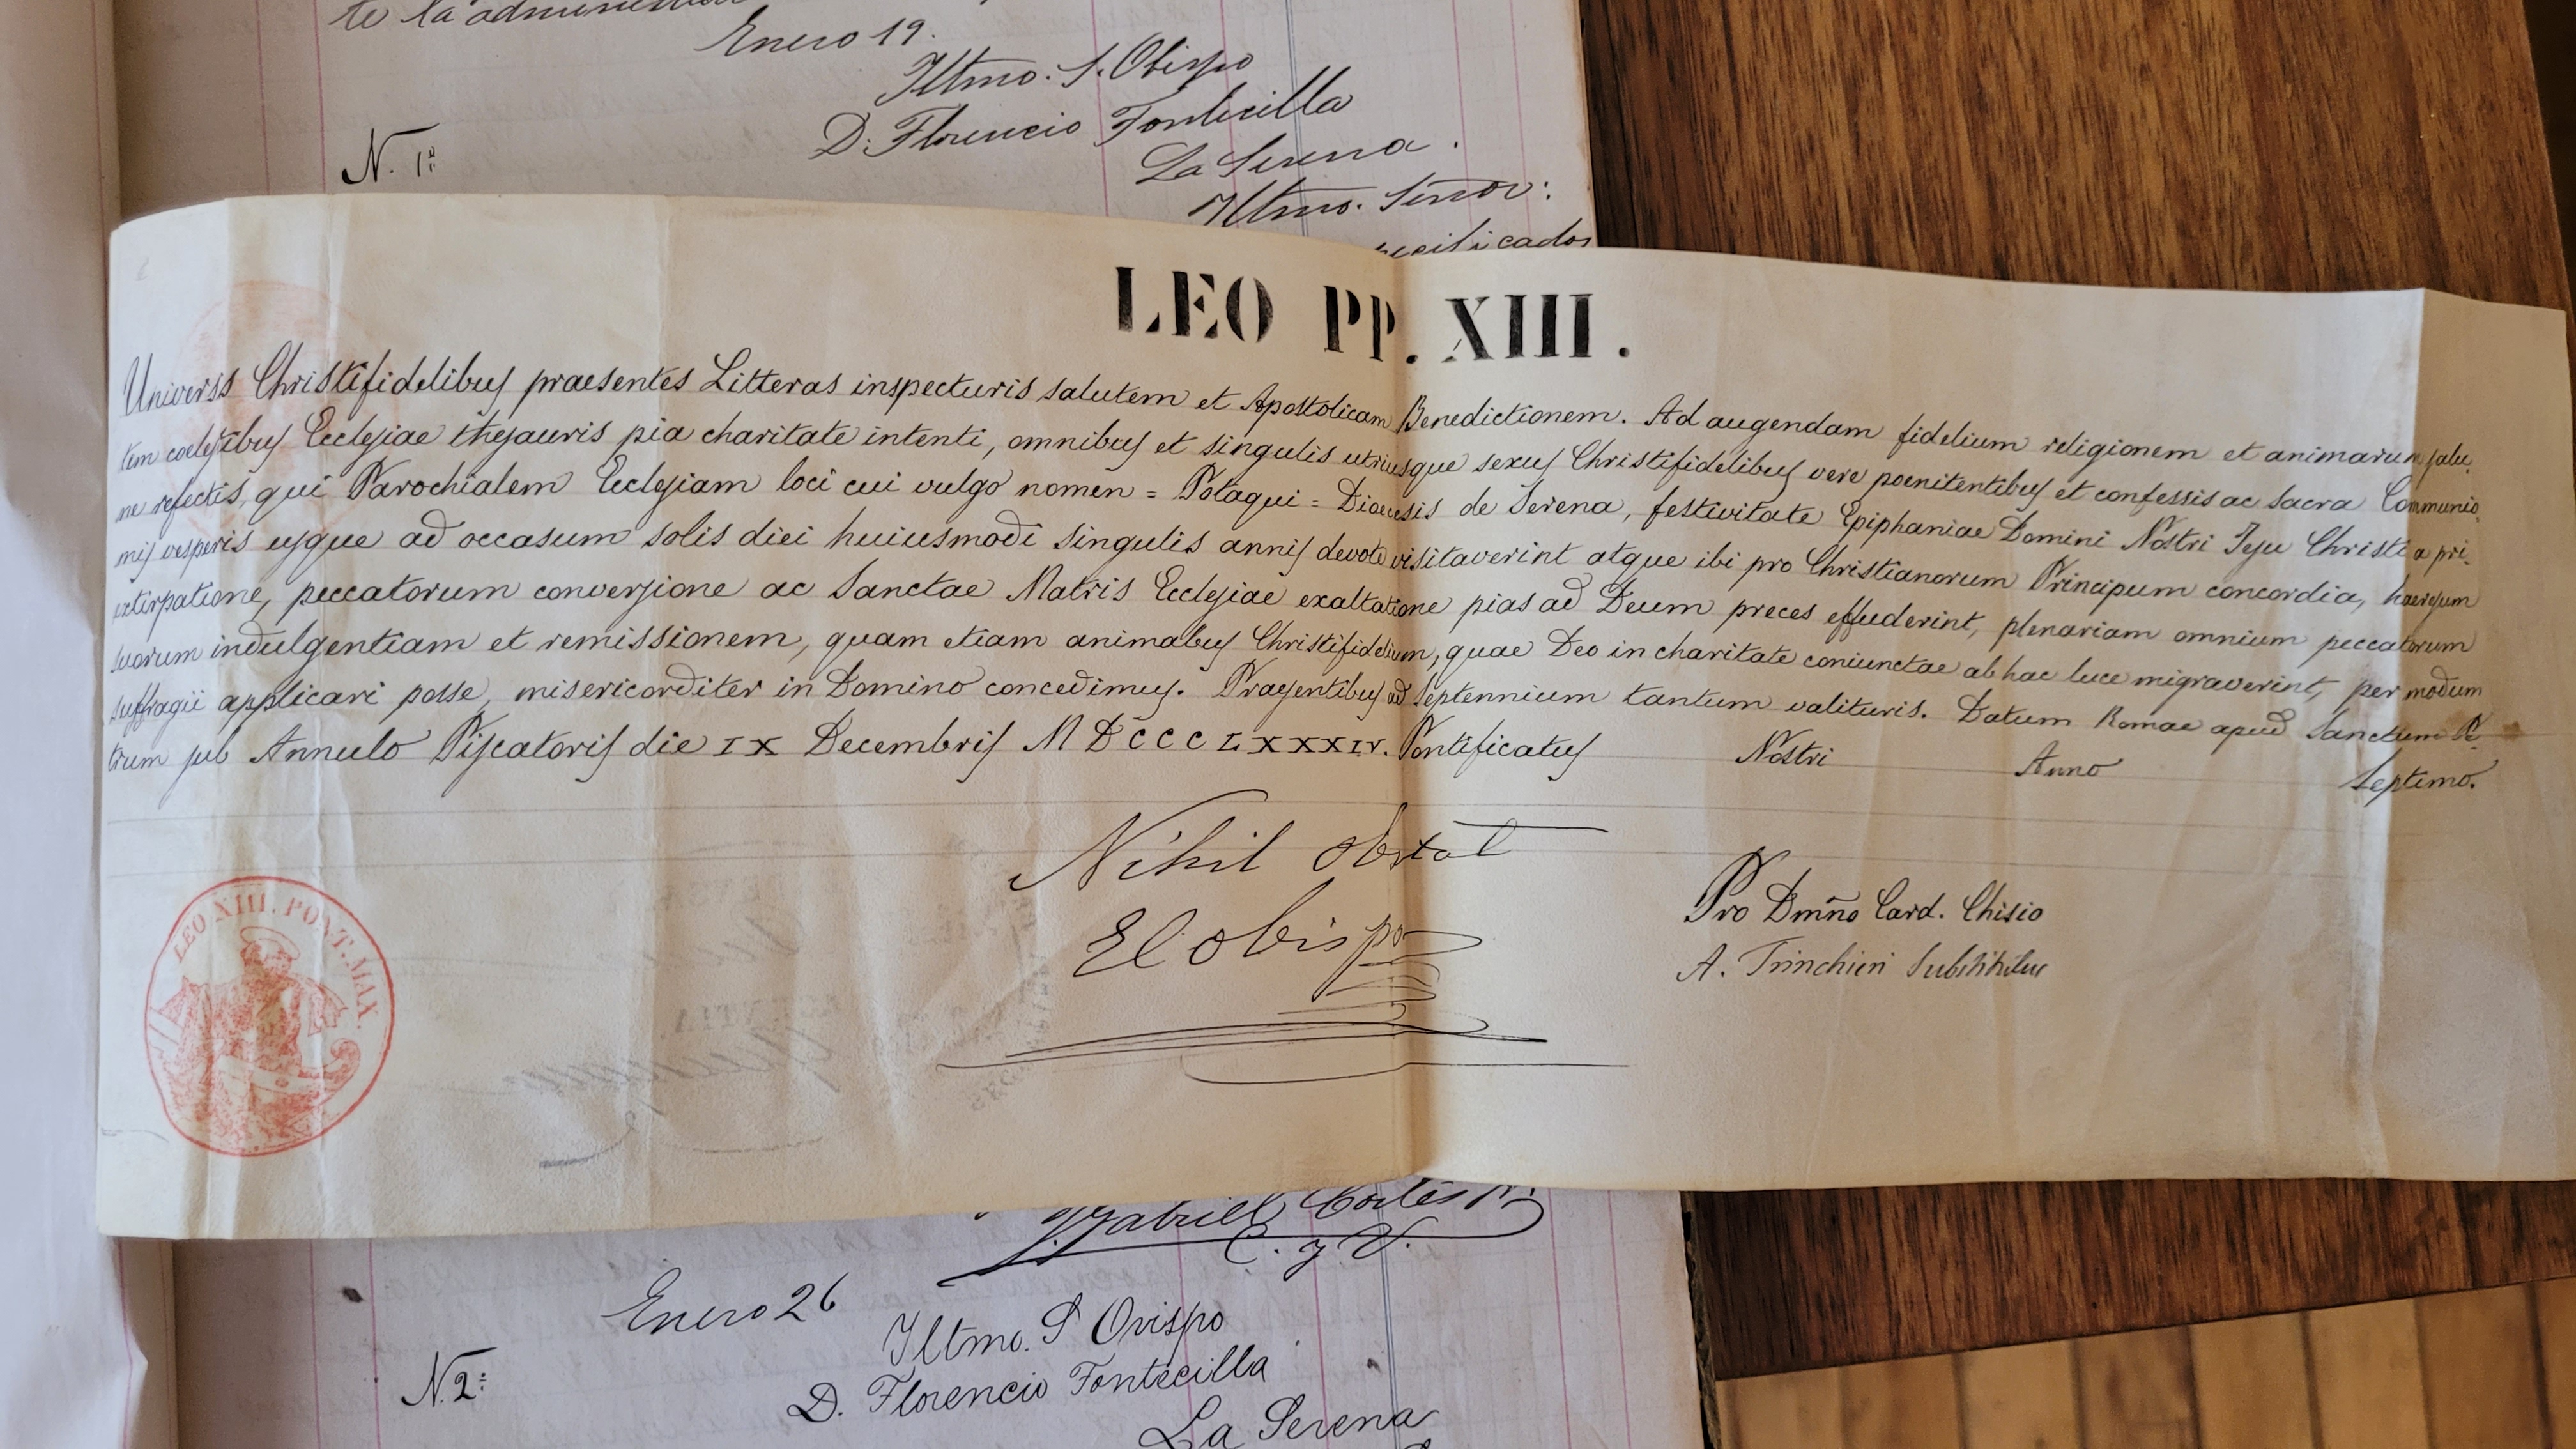 te la
Enero 19.
Iltmo. S. Obispo
D. Florencio Fontecilla
La Serena.
N. 1º
Iltmo. Señor:
LEO PP. XIII.
Universs Christifidelibus praesentes Litteras inspecturis salutem et Apostolicam Benedictionem. Ad augendam fidelium religionem et animarum salu,
tem coelestibus Ecclesiae thesauris pia charitate intenti, omnibus et singulis utriusque sexus Christifidelibus vere poenitentibus et confessis ac Sacra Communio,
ne refectis, qui Parochialem Ecclesiam loci cui vulgo nomen = Potaqui = Dioecesis de Serena, festivitate Epiphaniae Domini Nostri Jesu Christi a pri,
mis vesperis usque ad occasum solis diei huiusmodi singulis annis devote visitaverint atque ibi pro Christianorum Principum concordia, haeresum
extirpatione, peccatorum conversione ac Sanctae Matris Ecclesiae exaltatione pias ad Deum preces effuderint, plenariam omnium peccatorum
suorum indulgentiam et remissionem, quam etiam animabus Christifidelium, quae Deo in charitate coniunctae ab hac luce migraverint, per modum
suffragii applicari posse, misericorditer in Domino concedimus. Praesentibus ad Septennium tantum valituris. Datum Romae apud Sanctum Pe,
trum sub Annulo Piscatoris die IX Decembris MDCCCLXXXIV. Pontificatus Nostri Anno Septimo.
Nihil obstat
El obispo
Pro Dmño Card. Chisio
A. Trinchieri Substitutus
LEO XIII. PONT. MAX.
J. Gabriel Cortés
C. y V.
Enero 26
Iltmo. S Ovispo
N. 2º
D. Florencio Fontecilla
La Serena